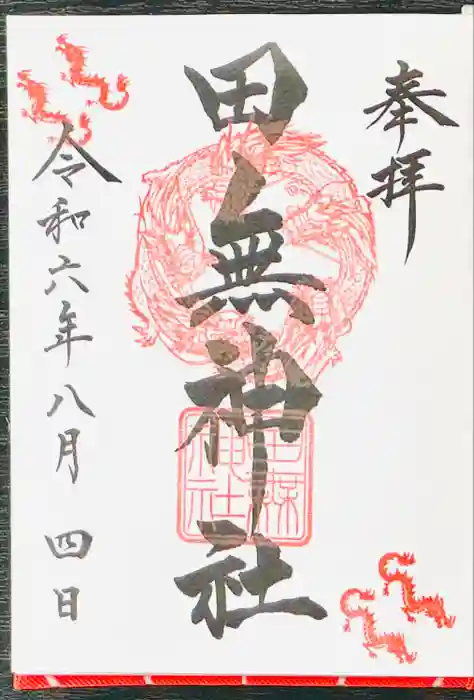 奉拝
田無神社
令和六年八月四日
田無神社